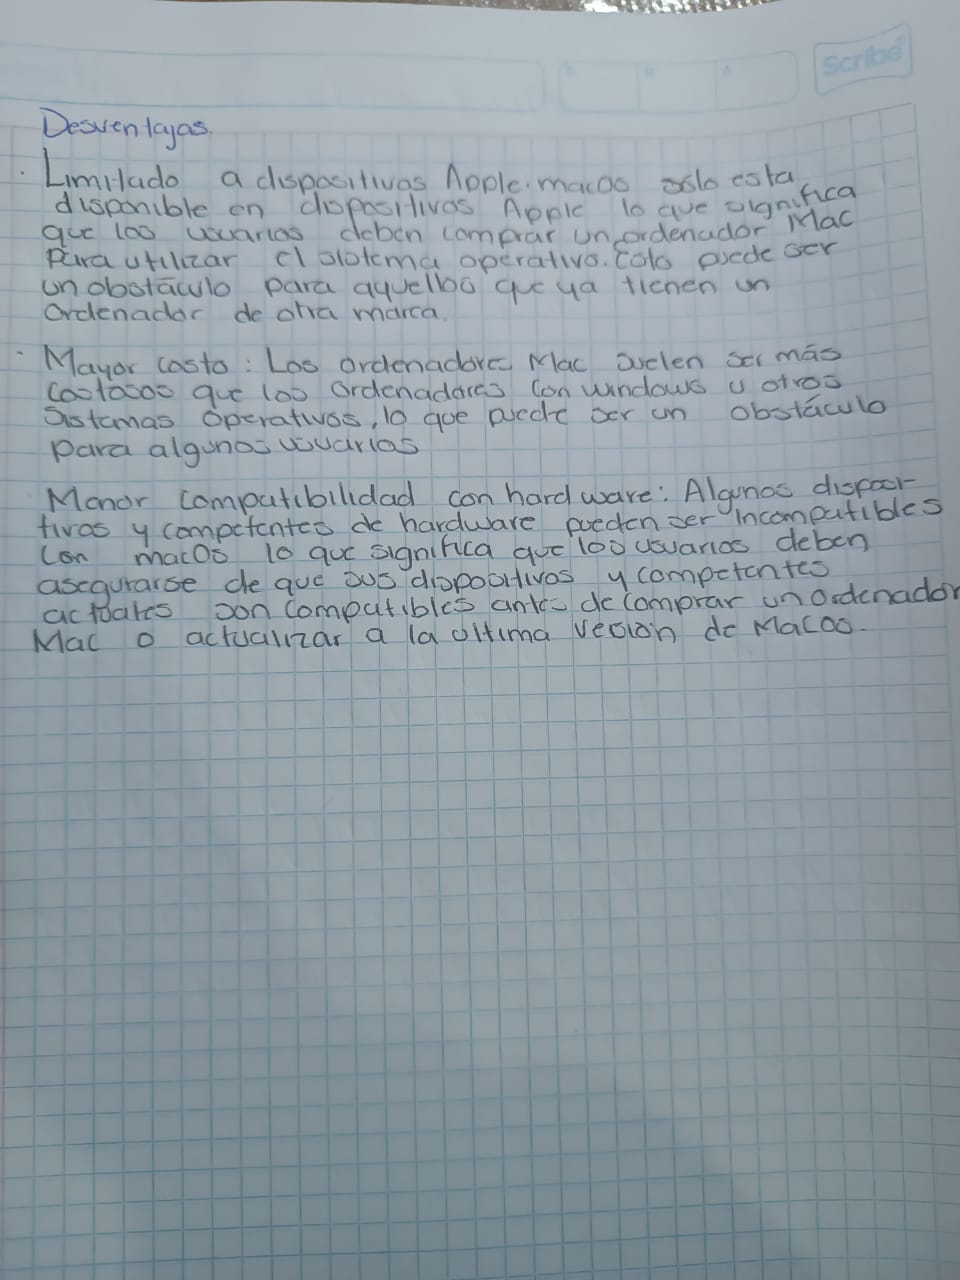 Scribe
Desventajas.
· Limitado a dispositivos Apple. macos solo esta
disponible en dispositivos Apple lo que significa
que los usuarios deben comprar un ordenador Mac
Para utilizar el sistema operativo. Esto puede ser
un obstáculo para aquellos que ya tienen un
Ordenador de otra marca.
· Mayor costo: Los ordenadores Mac suelen ser más
costosos que los ordenadores con windows u otros
Sistemas operativos, lo que puede ser un obstáculo
para algunos usuarios
Menor compatibilidad con hardware: Algunos disposi-
tivos y competentes de hardware pueden ser incompatibles
con macOs lo que significa que los usuarios deben
asegurarse de que sus dispositivos y competentes
actuales son compatibles antes de comprar un ordenador
Mac o actualizar a la ultima version de Macos.